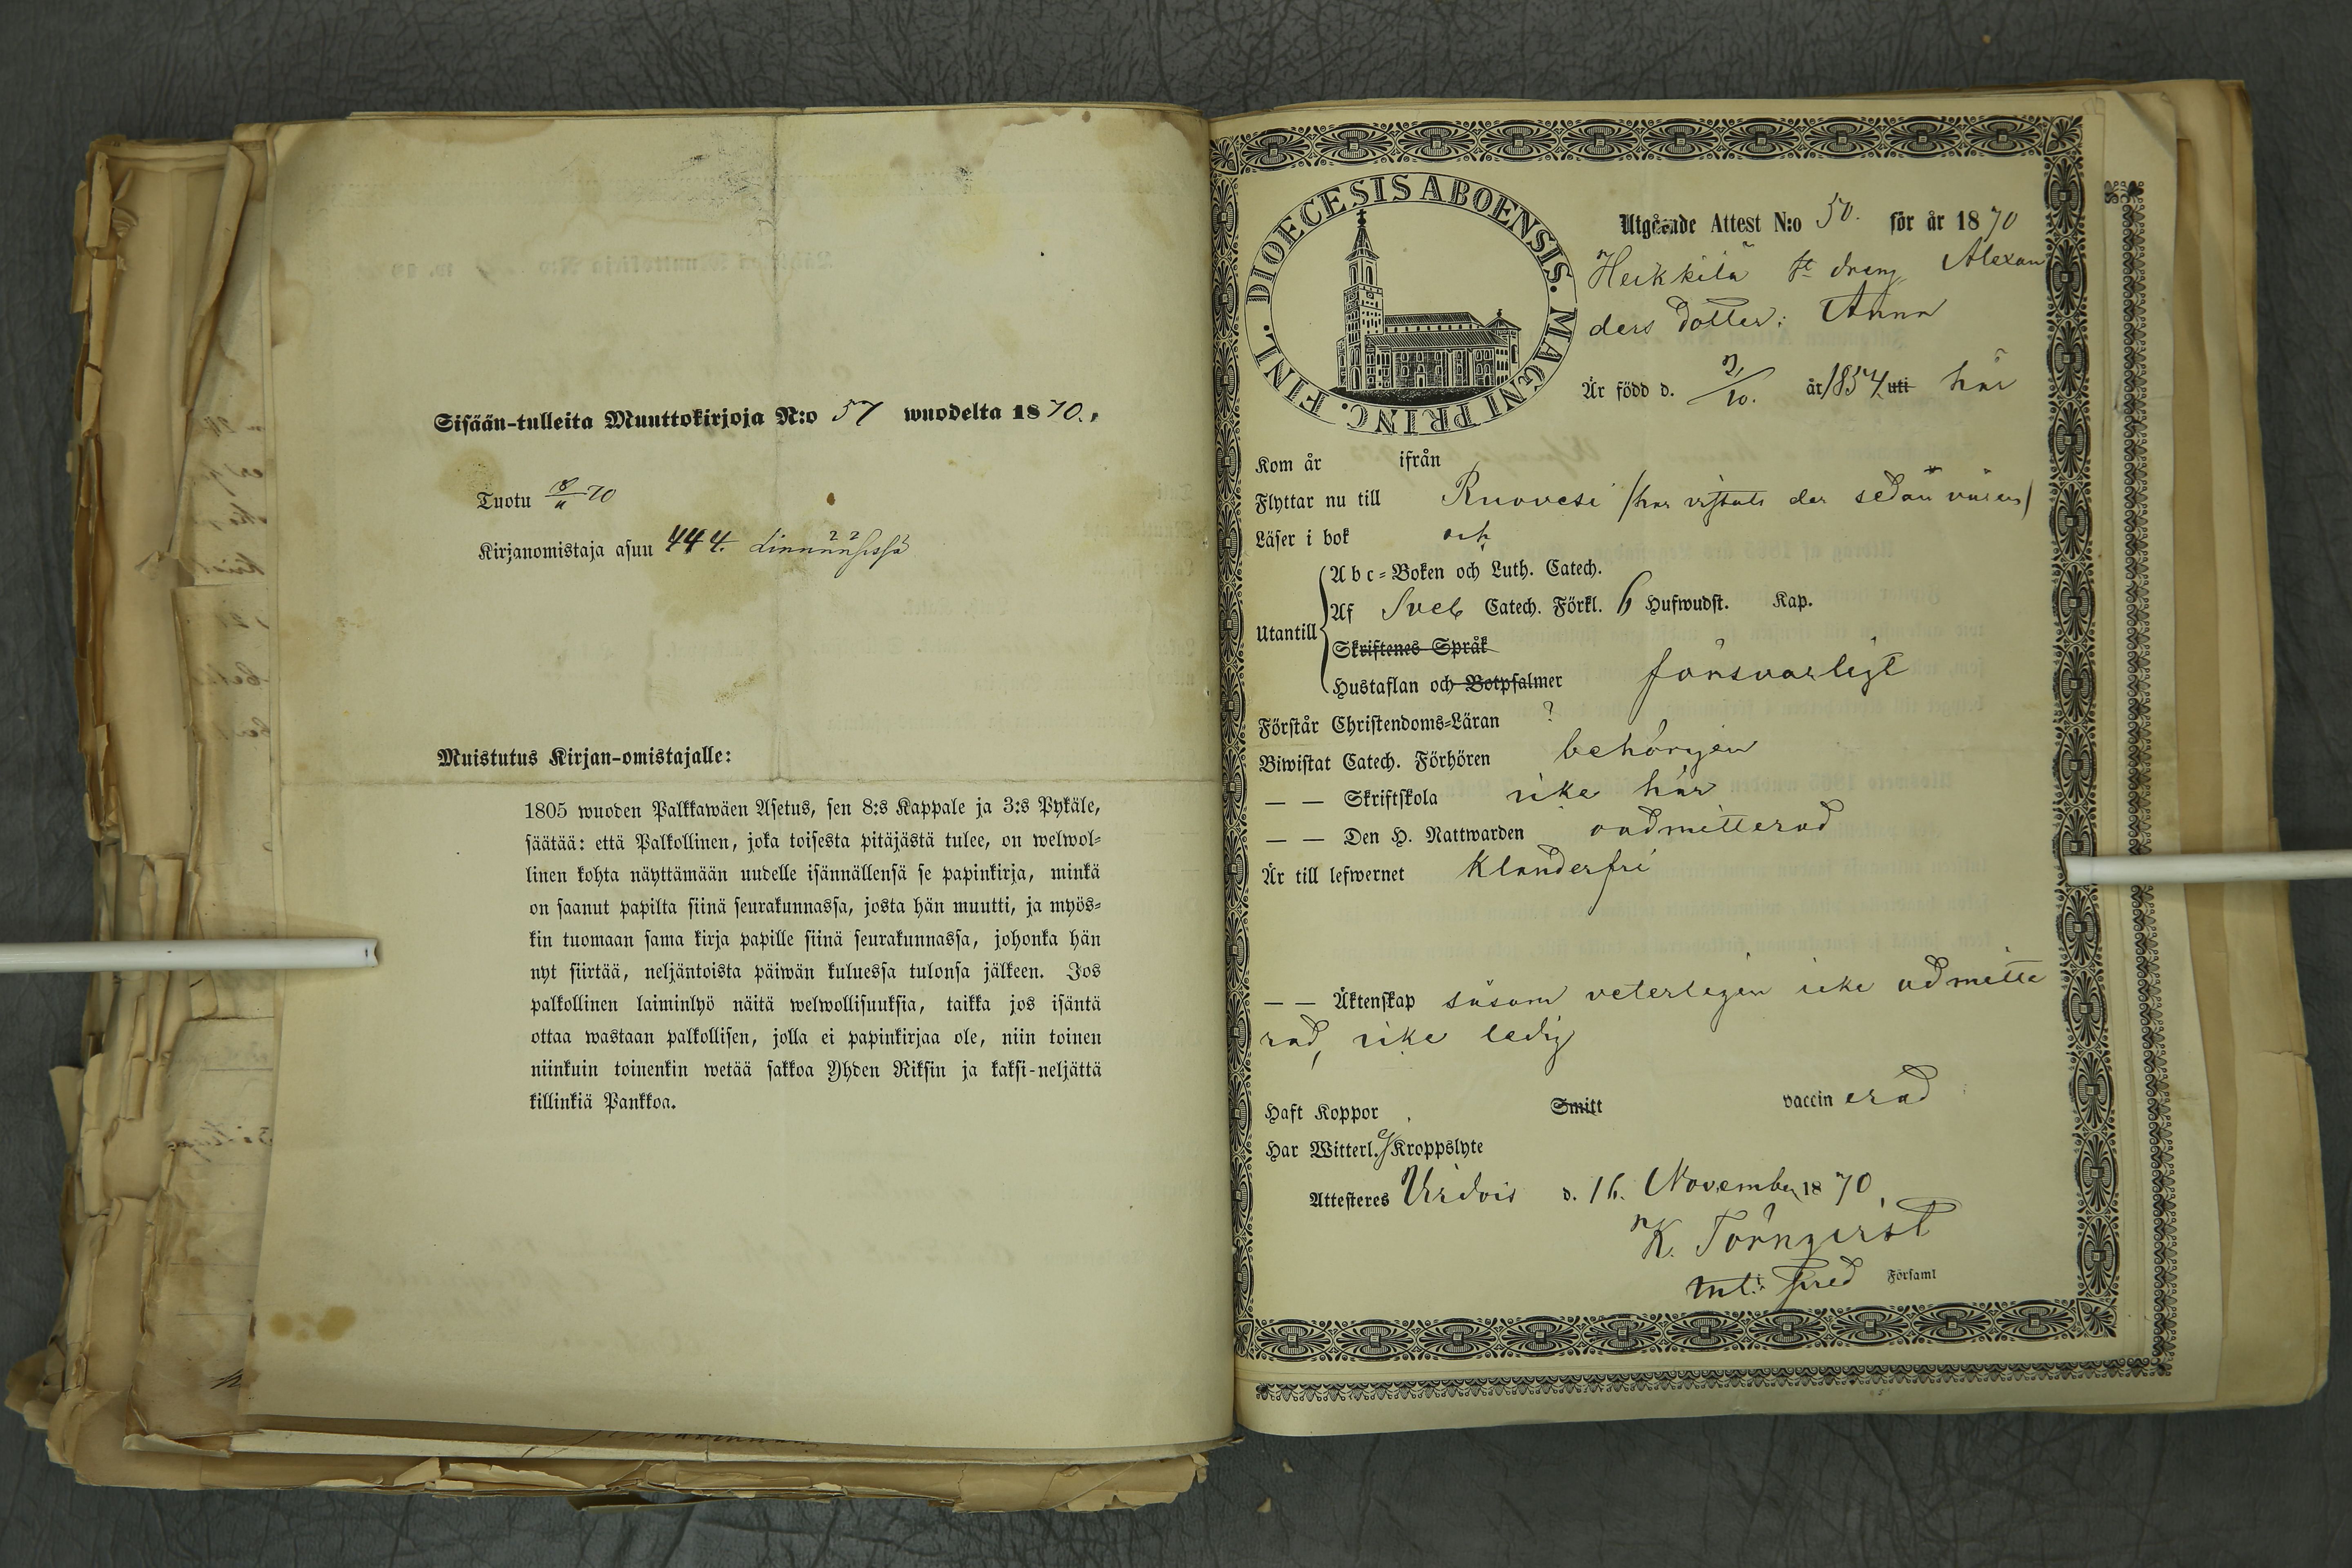 Sisään-tulleita Muuttokirjoja N:o 57 wuodelta 1870.
Tuotu 8/11 70
Kirjanomistaja asuu 444.
Muistutus Kirjan-omistajalle:
1805 wuoden Palkkawäen Asetus, sen 8:s Kappale ja 3:s Pykäle,
säätää: että Palkollinen, joka toisesta pitäjästä tulee, on welwol-
linen kohta näyttämään uudelle isännällensä se papinkirja, minkä
on saanut papilta siinä seurakunnassa, josta hän muutti, ja myös-
kin tuomaan sama kirja papille siinä seurakunnassa, johonka hän
nyt siirtää, neljäntoista päiwän kuluessa tulonsa jälkeen. Jos
palkollinen laiminlyö näitä welwollisuuksia, taikka jos isäntä
ottaa wastaan palkollisen, jolla ei papinkirjaa ole, niin toinen
niinkuin toinenkin wetää sakkoa Yhden Riksin ja kaksi-neljättä
killinkiä Pankkoa.
DIOECESIS ABOENSIS. MAGNI PRINC. FINL.
Utgående Attest N:o 50. för år 1870
Heikkilä dräng Alexan
ders dotter: Anna
Är född d. 2/10. år 1854 uti här
Kom år ifrån
Flyttar nu till Ruovesi (har vistats der sedan våren)
Läser i bok och
Abc-Boken och Luth. Catech.
Af Sveb Catech. Förkl. 6 Hufwudst. Kap.
Utantill
Skriftenes Språk
Hustaflan och Botpsalmer försvarligt
Förstår Christendoms-Läran ?
Biwistat Catech. Förhören behörigen
— — Skriftskola icke här
— — Den H. Nattwarden oadmitterad
Är till lefwernet Klanderfri
— — Äktenskap såsom veterlegen icke admitte
rad, icke ledig
Haft Koppor Smitt vaccinerad
Har Witterl. ej Kroppslyte
Attesteres Virdois d. 16. November 1870
K. Törnqvist
Församl